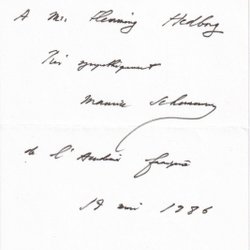 A Mr Flemming Hedborg
Très sympathiquement
Maurice Schumann
de l'Académie française
19 mai 1986